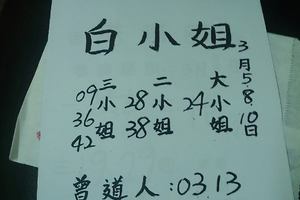 白小姐
3月5.8.10日
大小姐
24
二小姐
28
38
三小姐
09
36
42
曾道人:0313